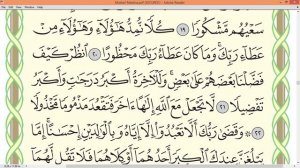 Mushaf Madinah.pdf (SECURED) - Adobe Reader
سَعْيُهُم مَّشْكُورًا ١٩ كُلًّا نُّمِدُّ هَٰؤُلَاءِ وَهَٰؤُلَاءِ مِنْ
عَطَاءِ رَبِّكَ وَمَا كَانَ عَطَاءُ رَبِّكَ مَحْظُورًا ٢٠ انظُرْ كَيْفَ
فَضَّلْنَا بَعْضَهُمْ عَلَىٰ بَعْضٍ وَلَلْآخِرَةُ أَكْبَرُ دَرَجَاتٍ وَأَكْبَرُ
تَفْضِيلًا ٢١ لَّا تَجْعَلْ مَعَ اللَّهِ إِلَٰهًا آخَرَ فَتَقْعُدَ مَذْمُومًا مَّخْذُولًا
٢٢ وَقَضَىٰ رَبُّكَ أَلَّا تَعْبُدُوا إِلَّا إِيَّاهُ وَبِالْوَالِدَيْنِ إِحْسَانًا إِمَّا
يَبْلُغَنَّ عِندَكَ الْكِبَرَ أَحَدُهُمَا أَوْ كِلَاهُمَا فَلَا تَقُل لَّهُمَا